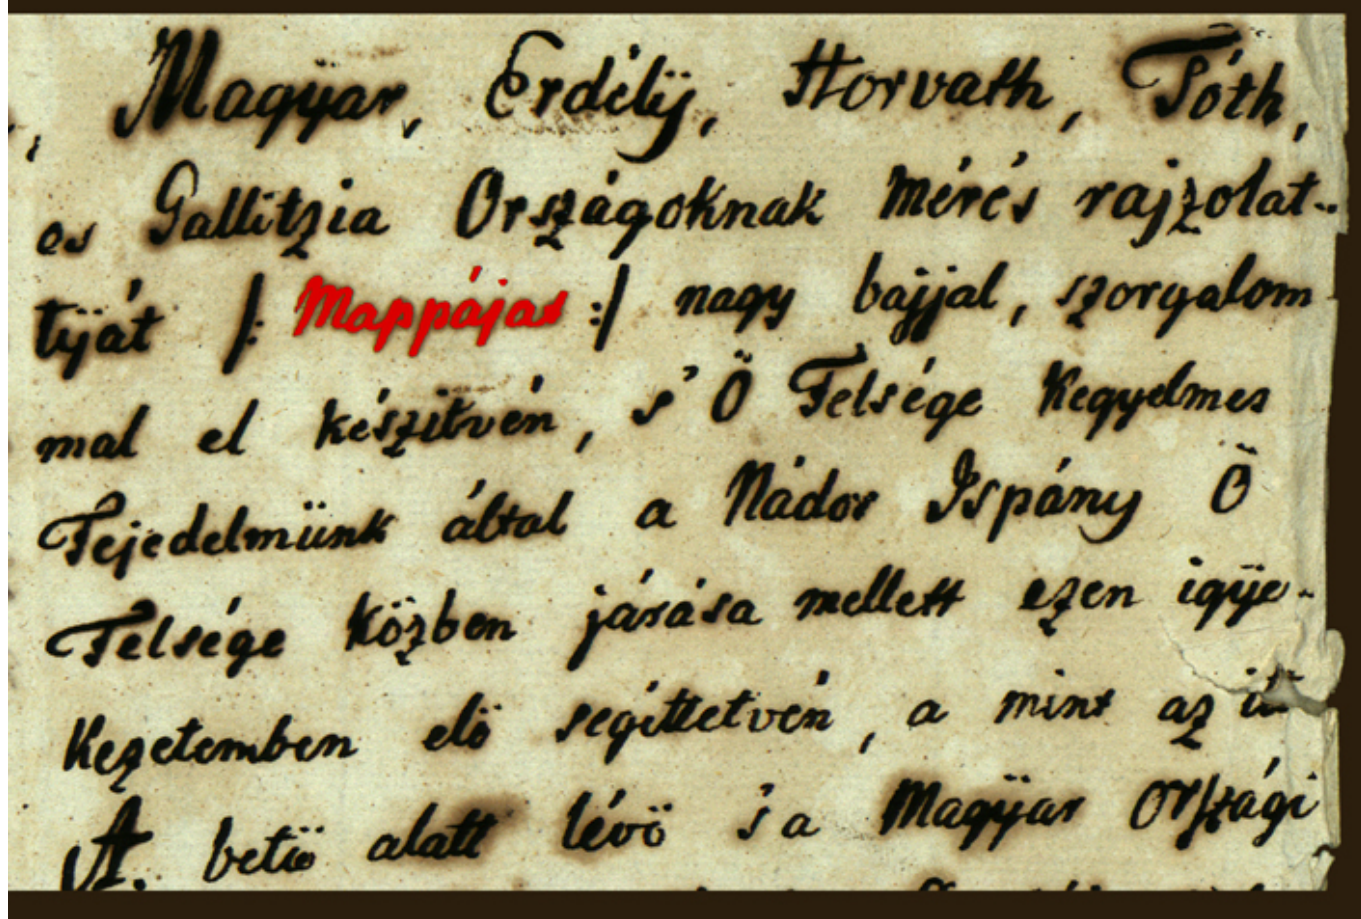 Magÿar, Erdélÿ, Horvath, Tóth,
es Gallitzia Országoknak mérés rajzolat-
tÿát /: Mappáját :/ nagy bajjal, szorgalom
mal el készitvén, s' Ö Felsége Kegyelmes
Fejedelmünk által a Nádor Ispány Ö
Felsége közben járása mellett ezen igÿe-
kezetemben elö segittetvén, a mint az
A. betü alatt lévö s a Magÿar Országi